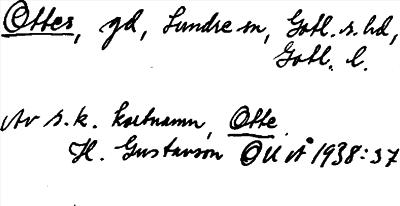 Ottes, gd, Sundre sn, Gotl. s. hd,
Gotl. l.
Av s.k. kortnamn, Otte.
H. Gustavson OUÅ 1938:37